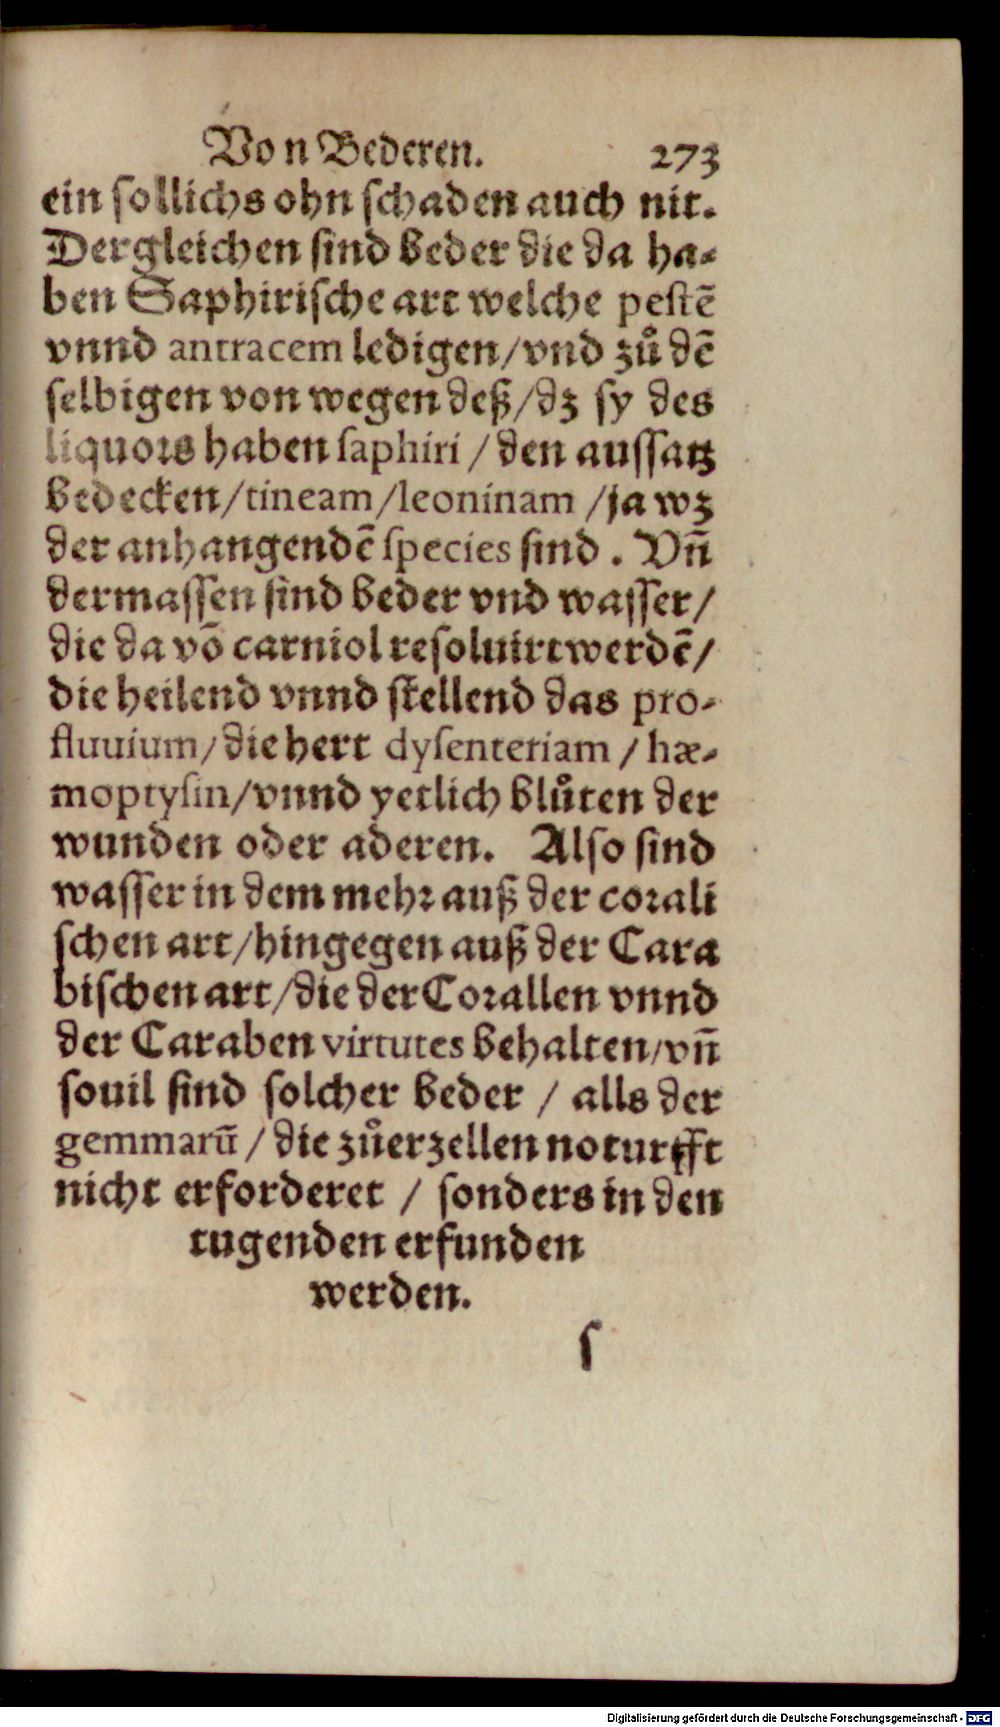 Von Bederen. 273
ein sollichs ohn schaden auch nit.
Dergleichen sind beder die da ha-
ben Saphirische art welche pestē
vnnd antracem ledigen/vnd zuͦ dē
selbigen von wegen deß/dz sy des
liquors haben saphiri / den aussatz
bedecken/tineam/leoninam /ja wz
der anhangendē species sind . Vñ
dermassen sind beder vnd wasser/
die da vō carniol resoluirt werdē/
die heilend vnnd stellend das pro-
fluuium/die hert dysenteriam / hæ-
moptysin/vnnd yetlich bluͦten der
wunden oder aderen. Also sind
wasser in dem mehr auß der corali
schen art/hingegen auß der Cara
bischen art/die der Corallen vnnd
der Caraben virtutes behalten/vñ
souil sind solcher beder / alls der
gemmarū / die zuͦerzellen noturfft
nicht erforderet / sonders in den
tugenden erfunden
werden.
ſ
Digitalisierung gefördert durch die Deutsche Forschungsgemeinschaft - DFG